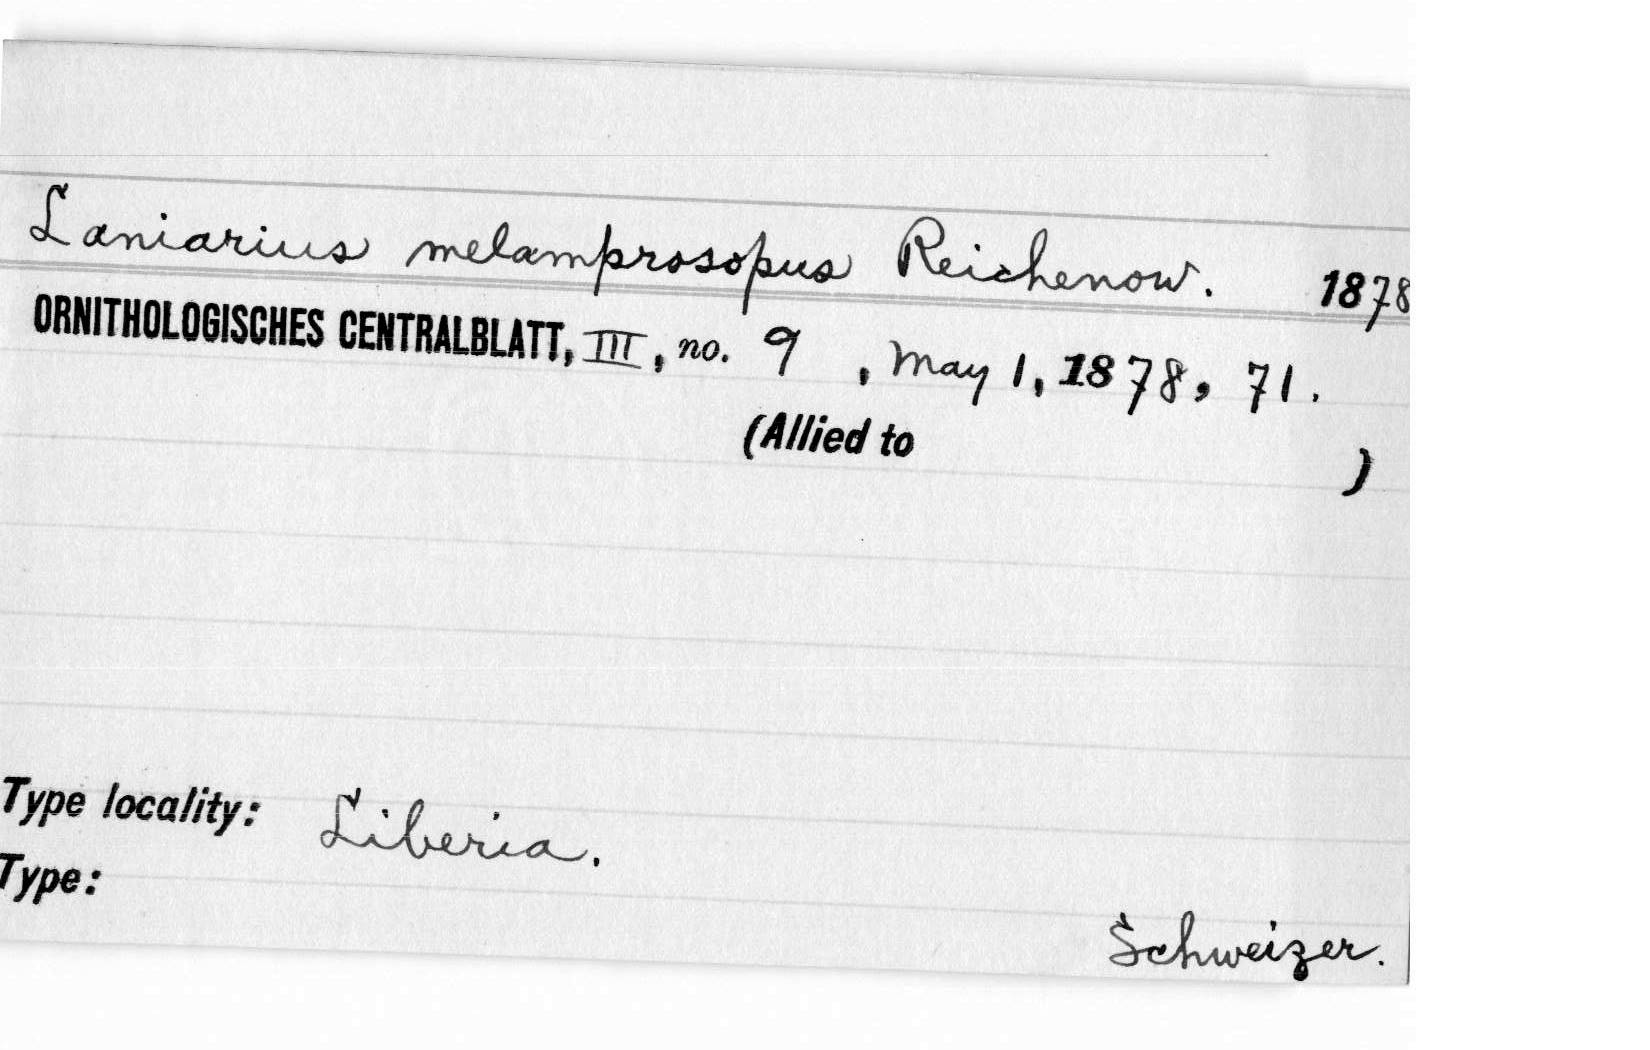 Laniarius melamprosopus Reichenow. 1878
ORNITHOLOGISCHES CENTRALBLATT, III, no. 9, May 1, 1878, 71.
(Allied to )
Type locality: Liberia.
Type:
Schweizer.